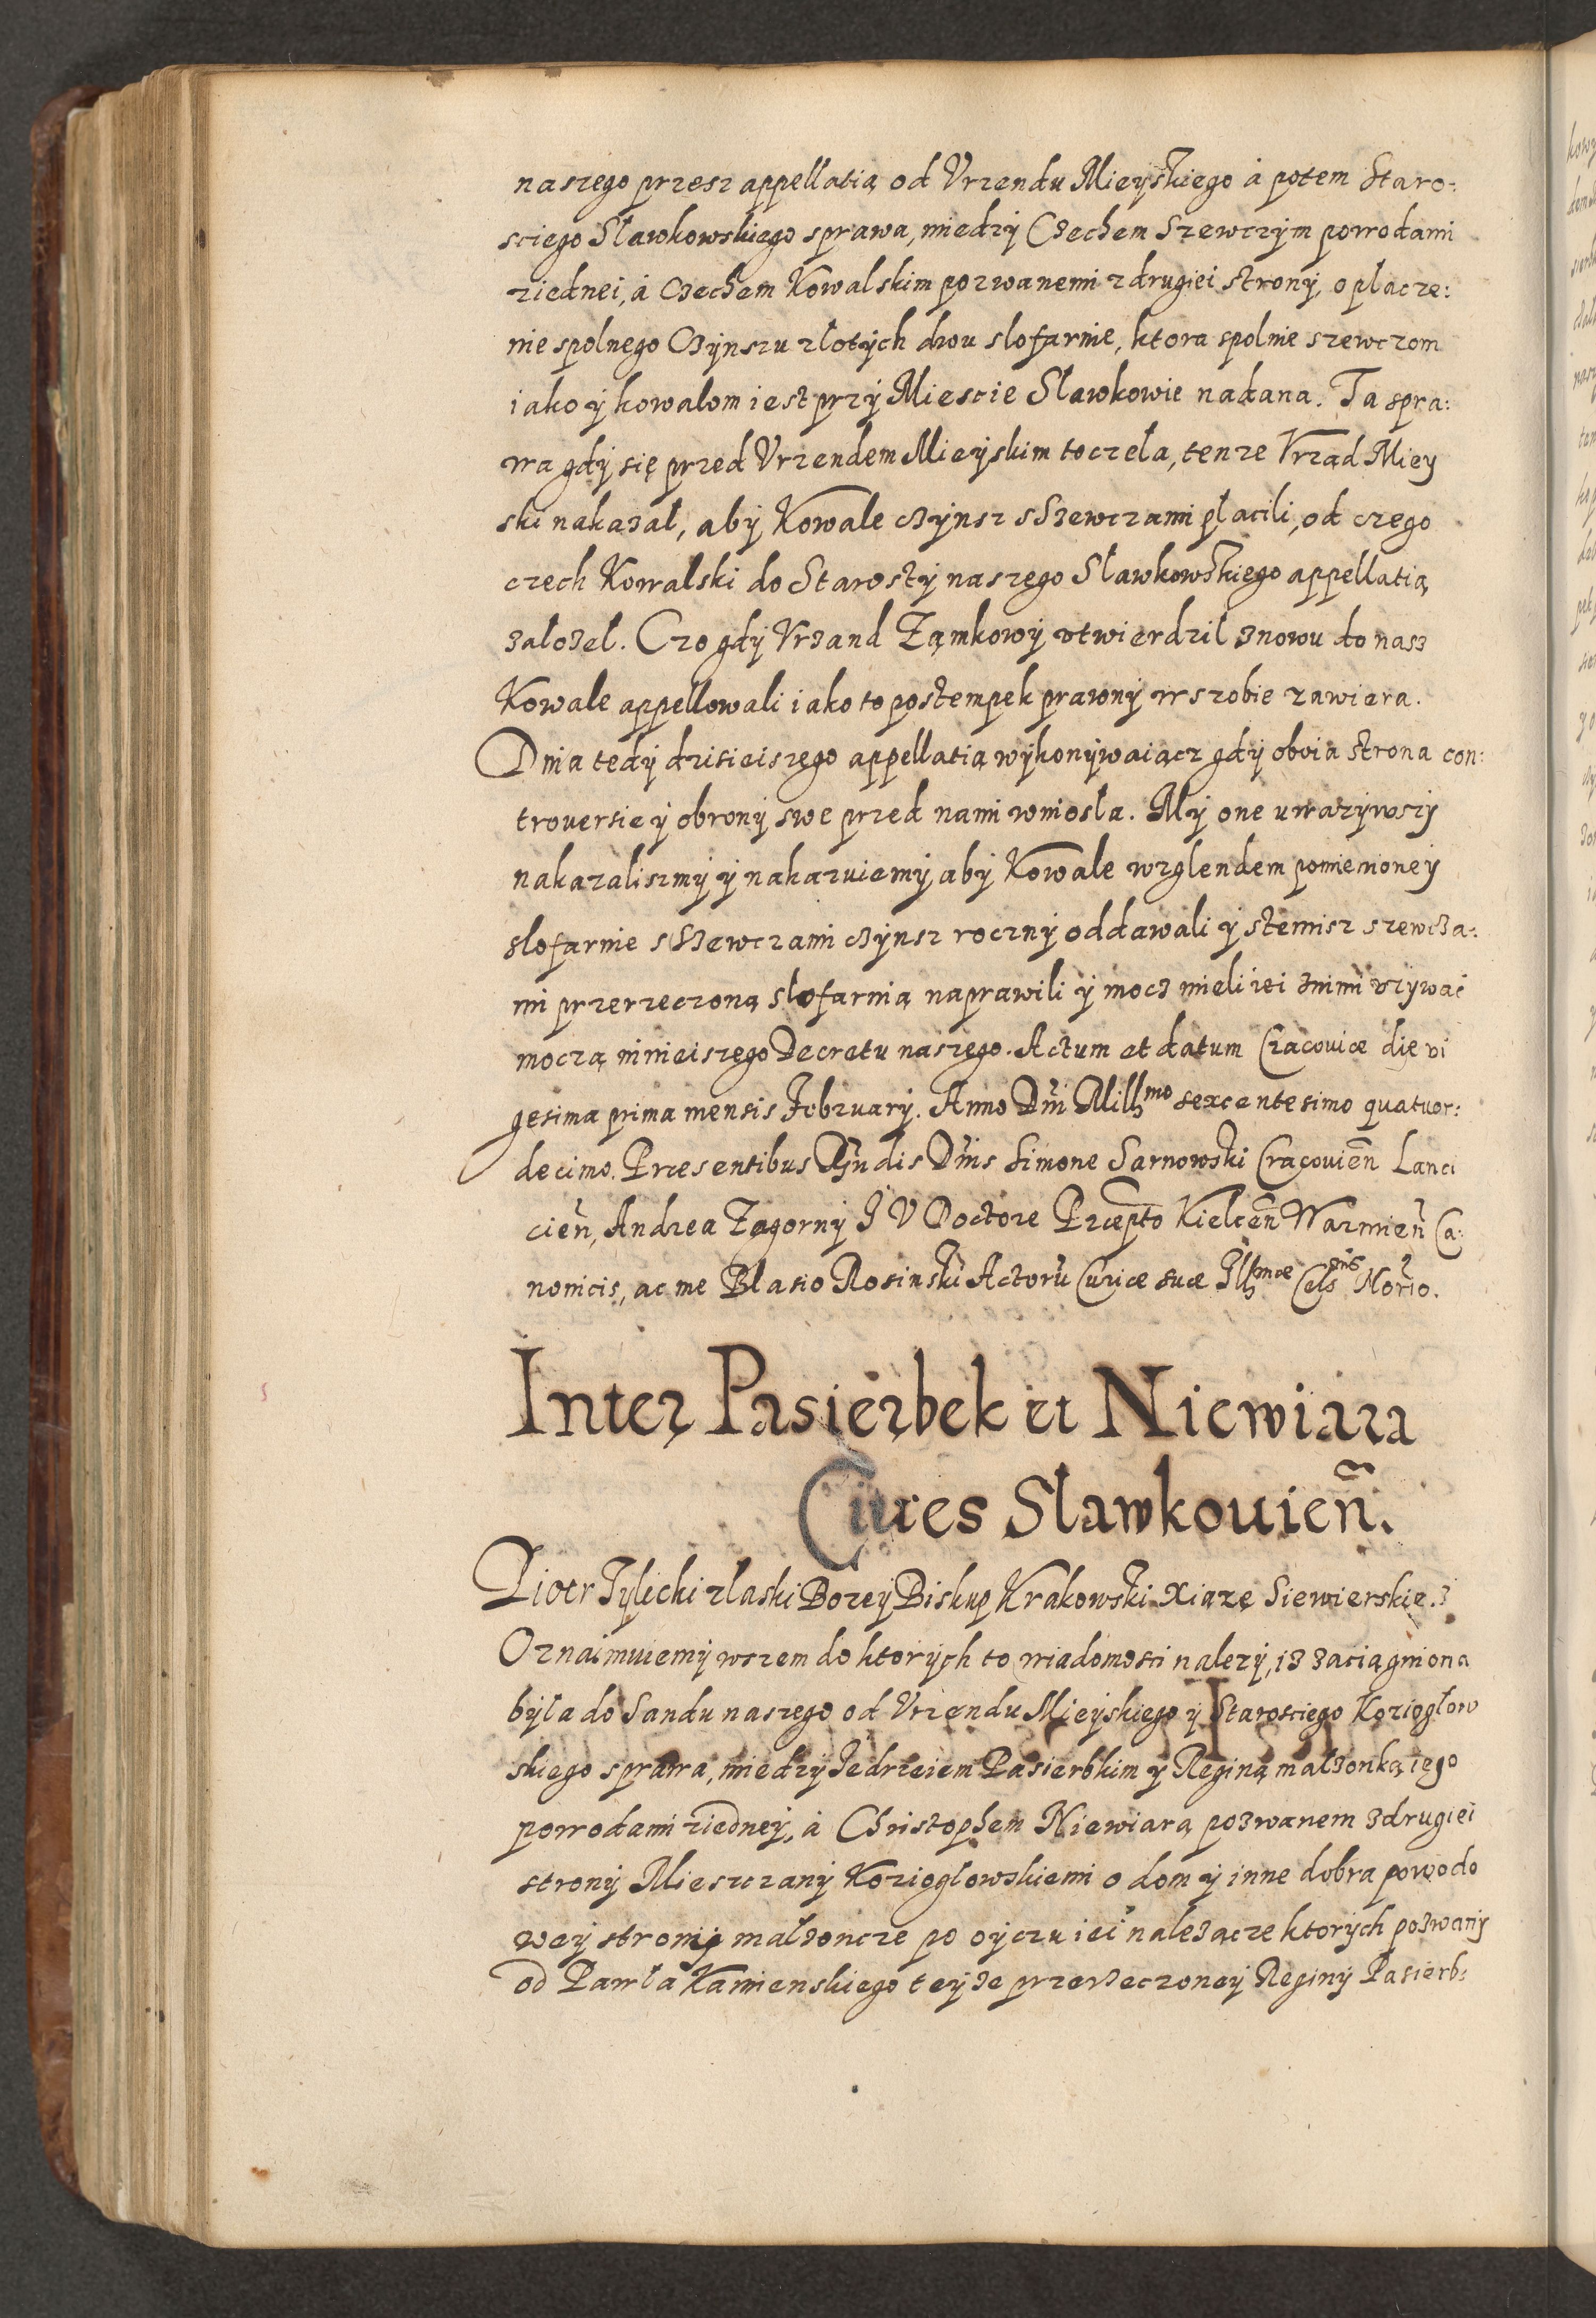 naszego przesz appellatią od Vrzendu Mieyskiego á potem Staro:
sciego Sławkowskiego sprawa, miedzy Czechem Szewczym powodami
ziednei, á Czechem Kowalskim pozwanemi z drugiei strony, o płacze:
nie spolnego Czynszu złotych dwu slofarnie, ktora spolnie szewczom
iako y kowalom iest przy Miescie Sławkowie nadana. Ta spra:
wa gdy się przed Vrzendem Mieyskim toczeła, tenze Vrząd Miey
ski nakazał, aby Kowale czynsz s Szewczami płacili, od czego
czech Kowalski do Starosty naszego Sławkowskiego appellatią
załozeł. Czo gdy Vrzand Ząmkowy vtwierdził znowu do nasz
Kowale appellowali iako to postempek prawny w szobie zawiera.
Dnia tedy dzisieiszego appellatią wykonywaiącz gdy oboia strona con:
trouersie y obrony swe przed nami wniosła. My one uwazywszy
nakazaliszmy y nakazuiemy aby Kowale wzglendem pomienioney
slofarnie s Szewczami czynsz roczny oddawali y stemisz szewcza:
mi przerzeczoną slofarnią naprawili y mocz mieli iei znimi vzywać
moczą ninieiszego Decretu naszego. Actum et datum Cracouiæ die vi
gesima prima mensis February. Anno Dni Mill̃mo sexcentesimo quatuor:
decimo. Præsentibus Rndis Dnis Simone Sarnowski Cracouien̄ Lanci
cien̄, Andrea Zagorny J V Doctore Præpto Kielcen̄ Warmien̄ Ca:
nonicis, ac me Blasio Rosinski Actorū Curiæ suæ Illmæ Cels̄nis Norio.
Inter Pasierbek et Niewiara
Ciues Slawkouien̄.
Piotr Tylicki z laski Bozey Biskup Krakowski Xiązę Siewierskie.
Oznaimuiemy wszem do ktorych to wiadomosci nalezy, iz zaciągniona
była do Sandu naszego od Vrzendu Mieyskiego y Starosciego Koziogłow
skiego sprawa, miedzy Jedrzeiem Pasierbkim y Reginą małzonką iego
powodami ziedney, á Christophem Niewiarą pozwanem z drugiei
strony Mieszczany Koziogłowskiemi o dom y inne dobra powodo
wey strony małzoncze po oyczu iei nalezącze ktorych pozwany
od Pawła Kamienskiego teyze przerzeczoney Reginy Pasierb: